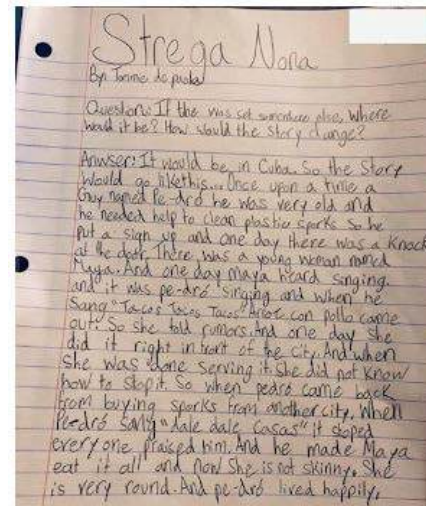 Strega Nona
By: Tomie de paola
Question: If the was set somewhere else, Where
would it be? How would the Story change?
Anwser: It would be in Cuba. So the Story
Would go like this... Once upon a time a
Guy named Pe-dró he was very old and
he needed help to clean plastic sporks so he
put a sign up and one day there was a knock
at the door, There was a young woman named
Maya. And one day maya heard singing.
and it was pe-dró singing and when he
Sang "Tacos Tacos Tacos" Arroz con pollo came
out. So she told rumors. And one day she
did it right infront of the city. And when
She was done serving it. She did not know
how to stop it. So when pedró came back
from buying sporks from another city. When
Peedró Sang "dale dale Casas" it stoped
every one praised him. And he made Maya
eat it all and now She is not skinny. She
is very round. And pe-dró lived happily.